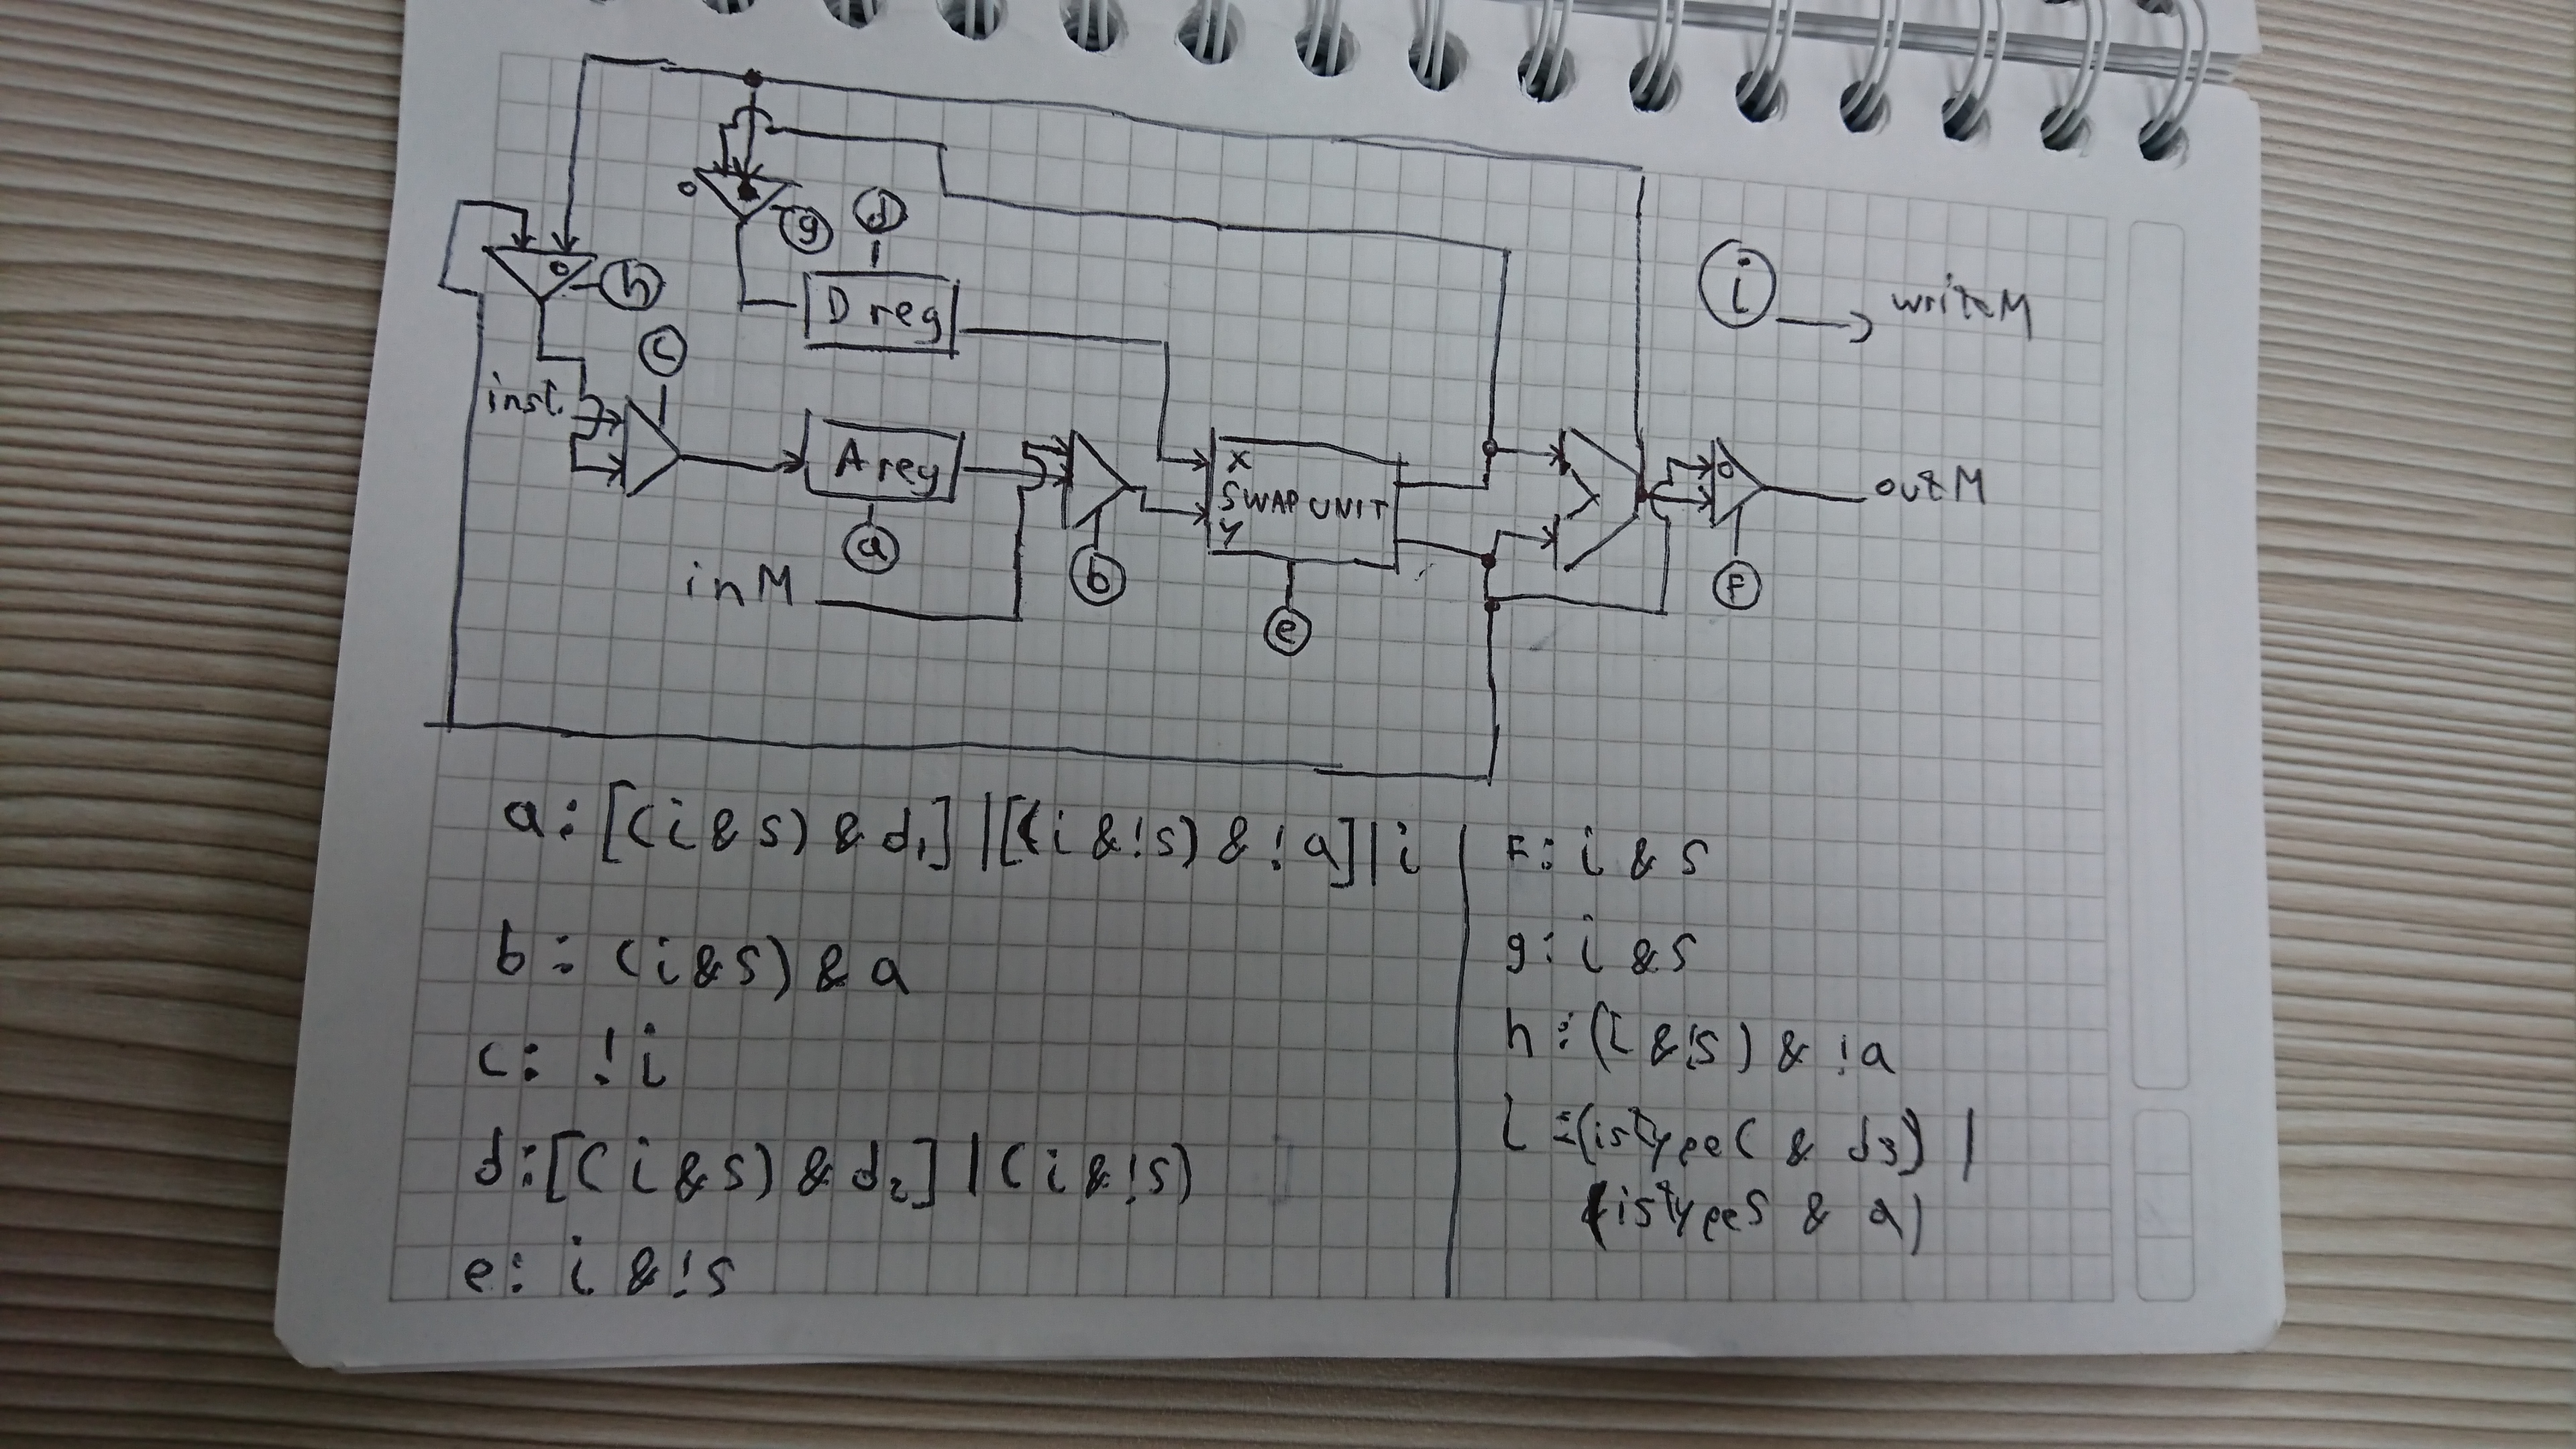 0
g
d
i
writeM
0
h
D reg
c
inst.
A reg
X
SWAP UNIT
Y
0
outM
a
b
F
inM
e
a: [(i & s) & d₁] | [(i & !s) & !a] | i
b: (i & s) & a
c: !i
d: [(i & s) & d₂] | (i & !s)
e: i & !s
F: i & s
g: i & s
h: (i & !s) & !a
i: (istypeC & d3) |
(istypeS & a)